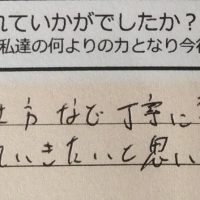 れていかがでしたか？
私達の何よりの力となり今後
せ方 など 丁寧に
ていきたいと思い